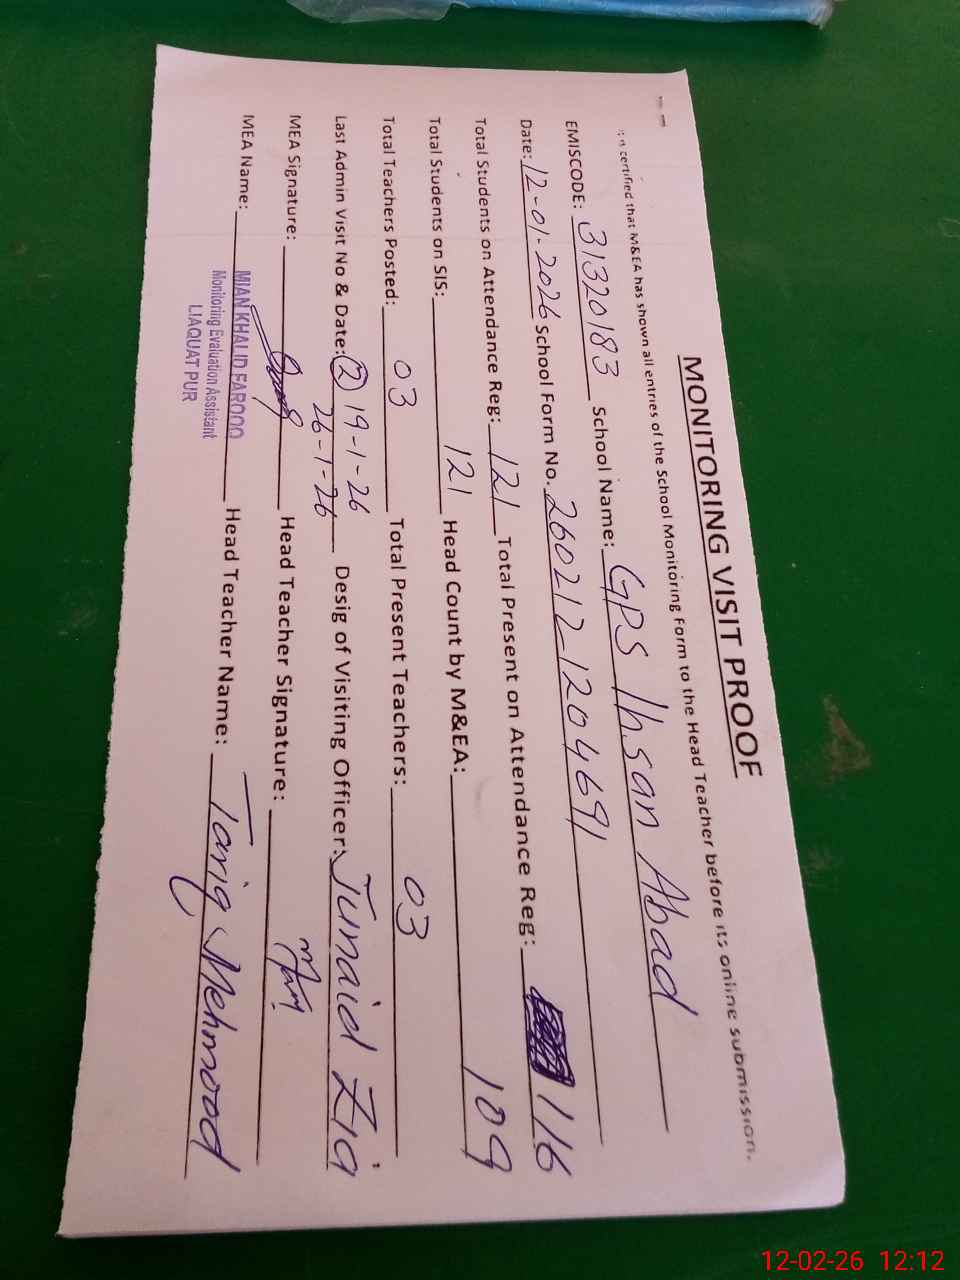 MONITORING VISIT PROOF
It is certified that M&EA has shown all entries of the School Monitoring Form to the Head Teacher before its online submission.
EMISCODE: 31320183 School Name: GPS Ihsan Abad
Date: 12-01-2026 School Form No. 2602121204691
Total Students on Attendance Reg: 121 Total Present on Attendance Reg: 116
Total Students on SIS: 121 Head Count by M&EA: 109
Total Teachers Posted: 03 Total Present Teachers: 03
Last Admin Visit No & Date: 2 19-1-26 Desig of Visiting Officer: Junaid Zia
26-1-26
MEA Signature: Head Teacher Signature:
MEA Name: MIAN KHALID FAROOQ Head Teacher Name: Tariq Mehmood
Monitoring Evaluation Assistant
LIAQUAT PUR
12-02-26 12:12